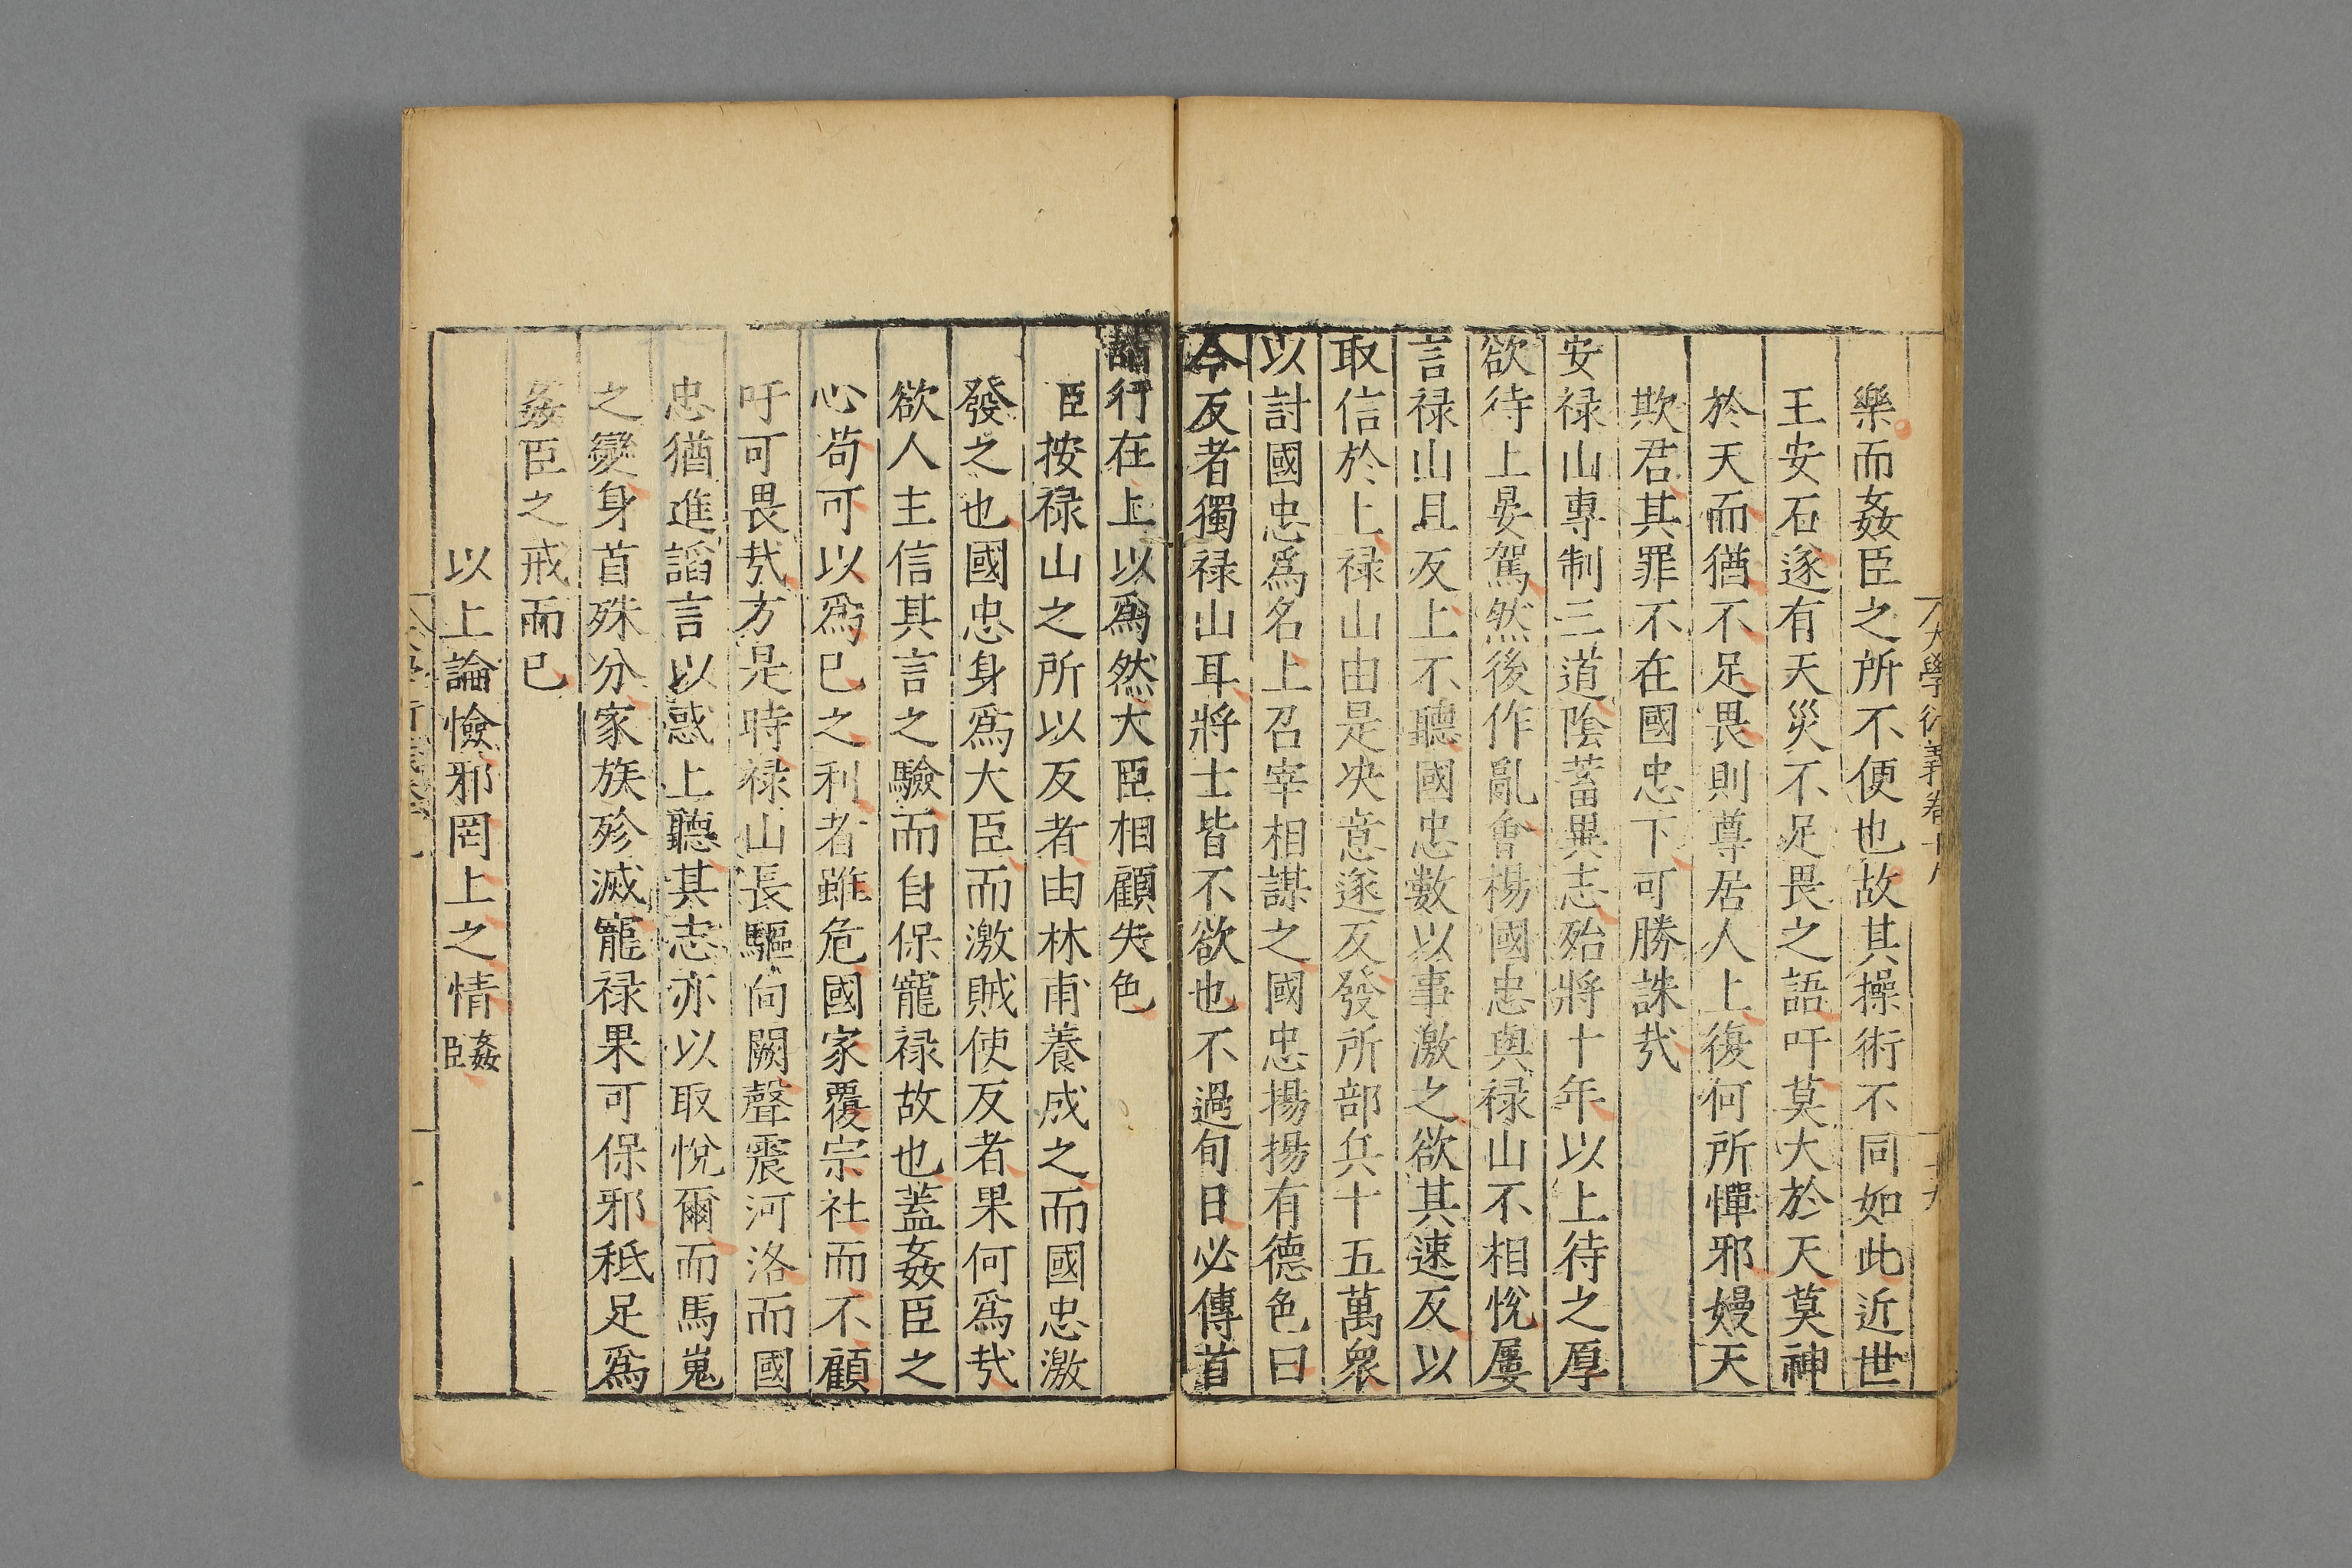 樂而姦臣之所不便也故其操術不同如此近世
王安石遂有天災不足畏之語吁莫大於天莫神
於天而猶不足畏則尊居人上復何所憚邪嫚天
欺君其罪不在國忠下可勝誅㦲
安禄山專制三道隂蓄異志殆將十年以上待之厚
欲待上晏駕然後作亂會楊國忠與禄山不相悅屢
言禄山且反上不聽國忠數以事激之欲其速反以
取信於上禄山由是决意遂反發所部兵十五萬衆
以討國忠爲名上召宰相謀之國忠揚揚有德色曰
今反者獨禄山耳將士皆不欲也不過旬日必傳首
詣行在上以爲然大臣相顧失色
臣按禄山之所以反者由林甫養成之而國忠激
發之也國忠身爲大臣而激賊使反者果何爲㦲
欲人主信其言之驗而自保寵禄故也蓋姦臣之
心苟可以爲已之利者雖危國家覆宗社而不顧
吁可畏㦲方是時禄山長驅向闕聲震河洛而國
忠猶進謟言以惑上聽其志亦以取悅爾而馬嵬
之變身首殊分家族殄滅寵禄果可保邪秪足爲
姦臣之戒而已
以上論憸邪罔上之情姦臣
大學衍義卷十